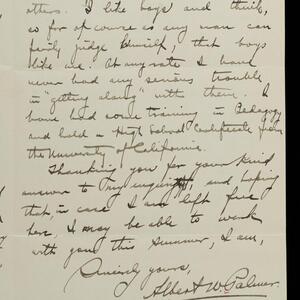 others. I like boys and think,
so far of course as any man can
fairly judge himself, that boys
like me. At any rate I have
never had any serious trouble
in "getting along" with them. I
have had some training in Pedagogy
and hold a High School Certificate from
the University of California.
Thanking you for your kind
answer to my inquiry, and hoping
that, in case I am left free
here, I may be able to work
with you this summer, I am,
Sincerely yours,
Albert W. Palmer.